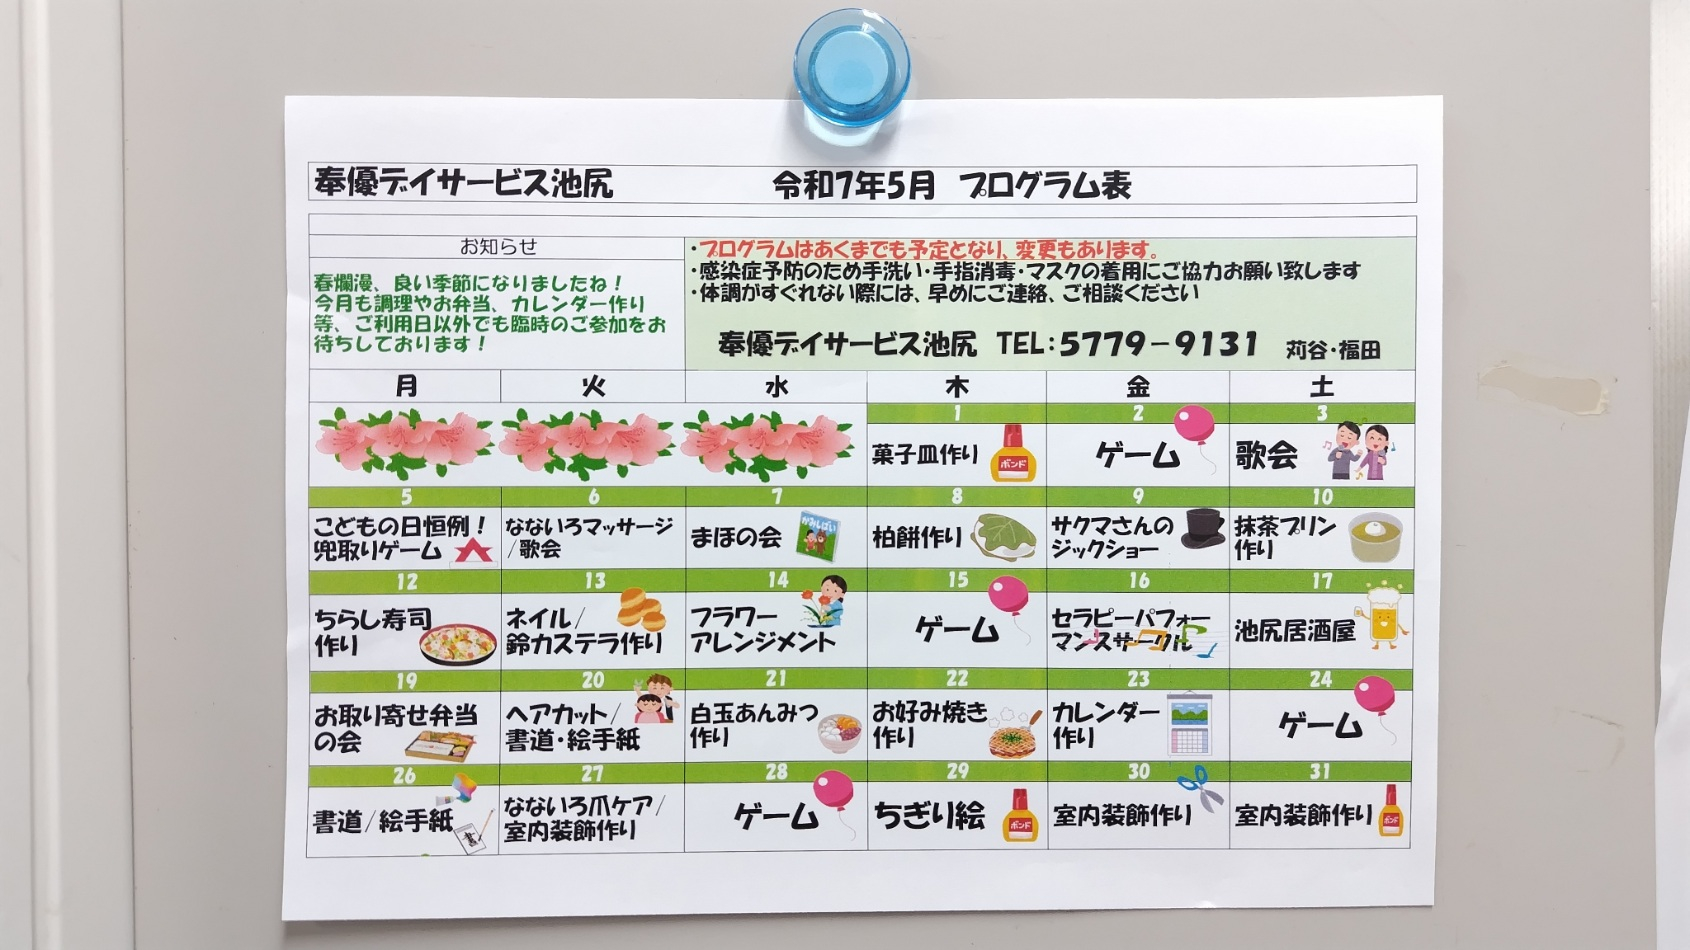 奉優デイサービス池尻 令和7年5月 プログラム表
お知らせ
春爛漫、良い季節になりましたね！
今月も調理やお弁当、カレンダー作り
等、ご利用日以外でも臨時のご参加をお
待ちしております！
・プログラムはあくまでも予定となり、変更もあります。
・感染症予防のため手洗い・手指消毒・マスクの着用にご協力お願い致します
・体調がすぐれない際には、早めにご連絡、ご相談ください
奉優デイサービス池尻 TEL：5779－9131 苅谷・福田
月 火 水 木 金 土
1 2 3
菓子皿作り
ボンド
ゲーム
歌会
5 6 7 8 9 10
こどもの日恒例！
兜取りゲーム
なないろマッサージ
/歌会
まほの会
かみしばい
柏餅作り
サクマさんの
ジックショー
抹茶プリン
作り
12 13 14 15 16 17
ちらし寿司
作り
ネイル/
鈴カステラ作り
フラワー
アレンジメント
ゲーム
セラピーパフォー
マンスサークル
池尻居酒屋
19 20 21 22 23 24
お取り寄せ弁当
の会
ヘアカット/
書道・絵手紙
白玉あんみつ
作り
お好み焼き
作り
カレンダー
作り
ゲーム
26 27 28 29 30 31
書道/絵手紙
なないろ爪ケア/
室内装飾作り
ゲーム
ちぎり絵
ボンド
室内装飾作り
室内装飾作り
ボンド